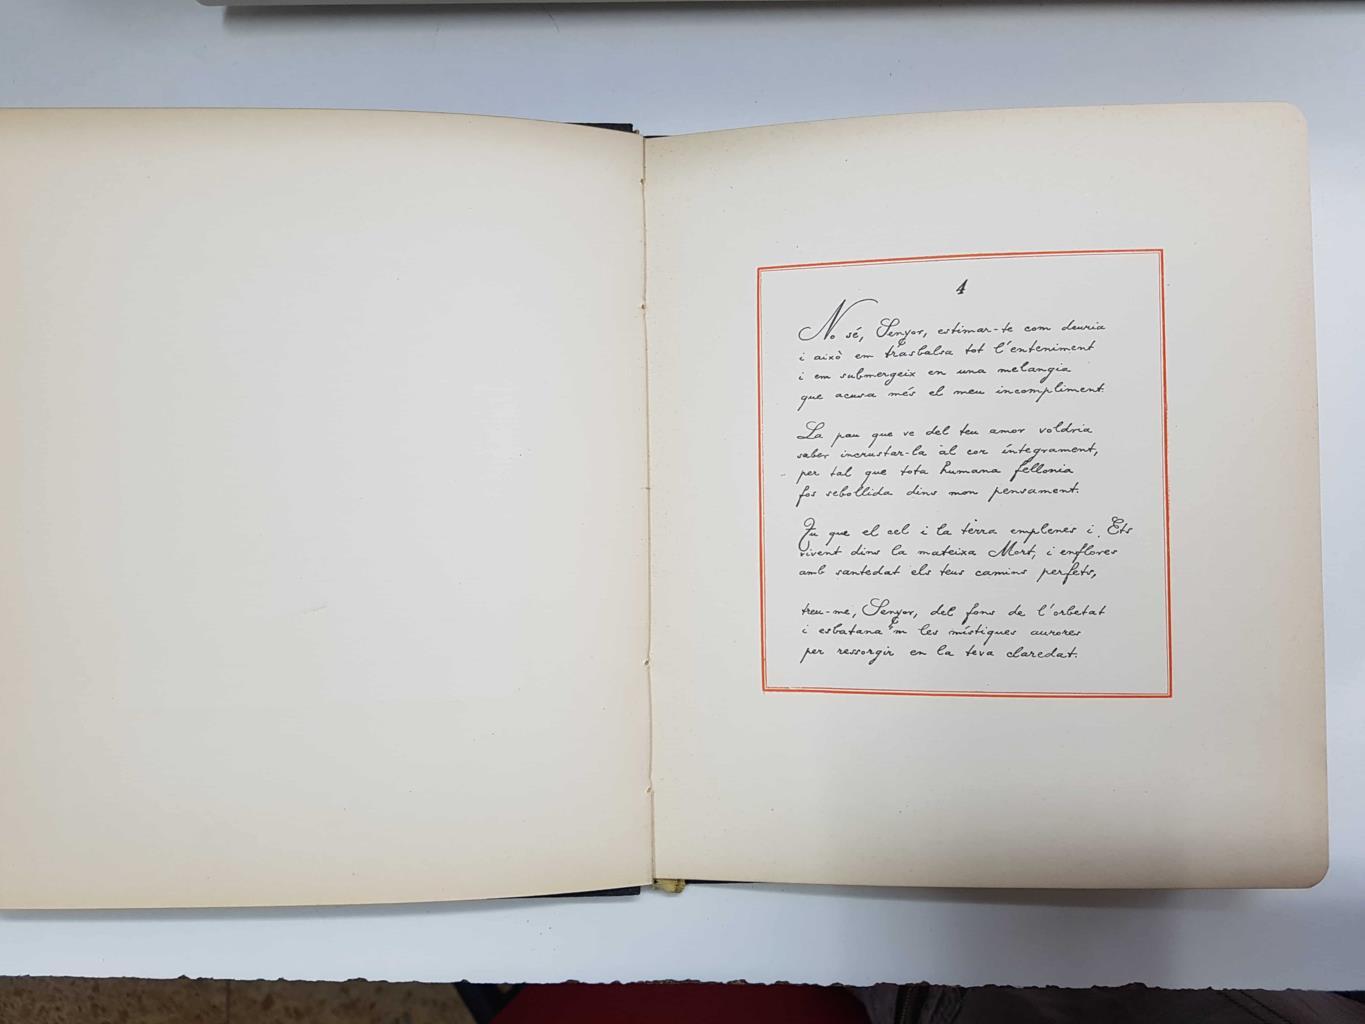 4
No sé, Senyor, estimar-te com deuria
i això em trasbalsa tot l'enteniment
i em submergeix en una melangia
que acusa més el meu incompliment.
La pau que ve del teu amor voldria
saber incrustar-la al cor íntegrament,
per tal que tota humana fellonia
fos sebollida dins mon pensament.
Tu que el cel i la terra emplenes i Ets
vivent dins la mateixa Mort, i enflores
amb santedat els teus camins perfets,
treu-me, Senyor, del fons de l'orbetat
i esbatana'm les místiques aurores
per ressorgir en la teva claredat.